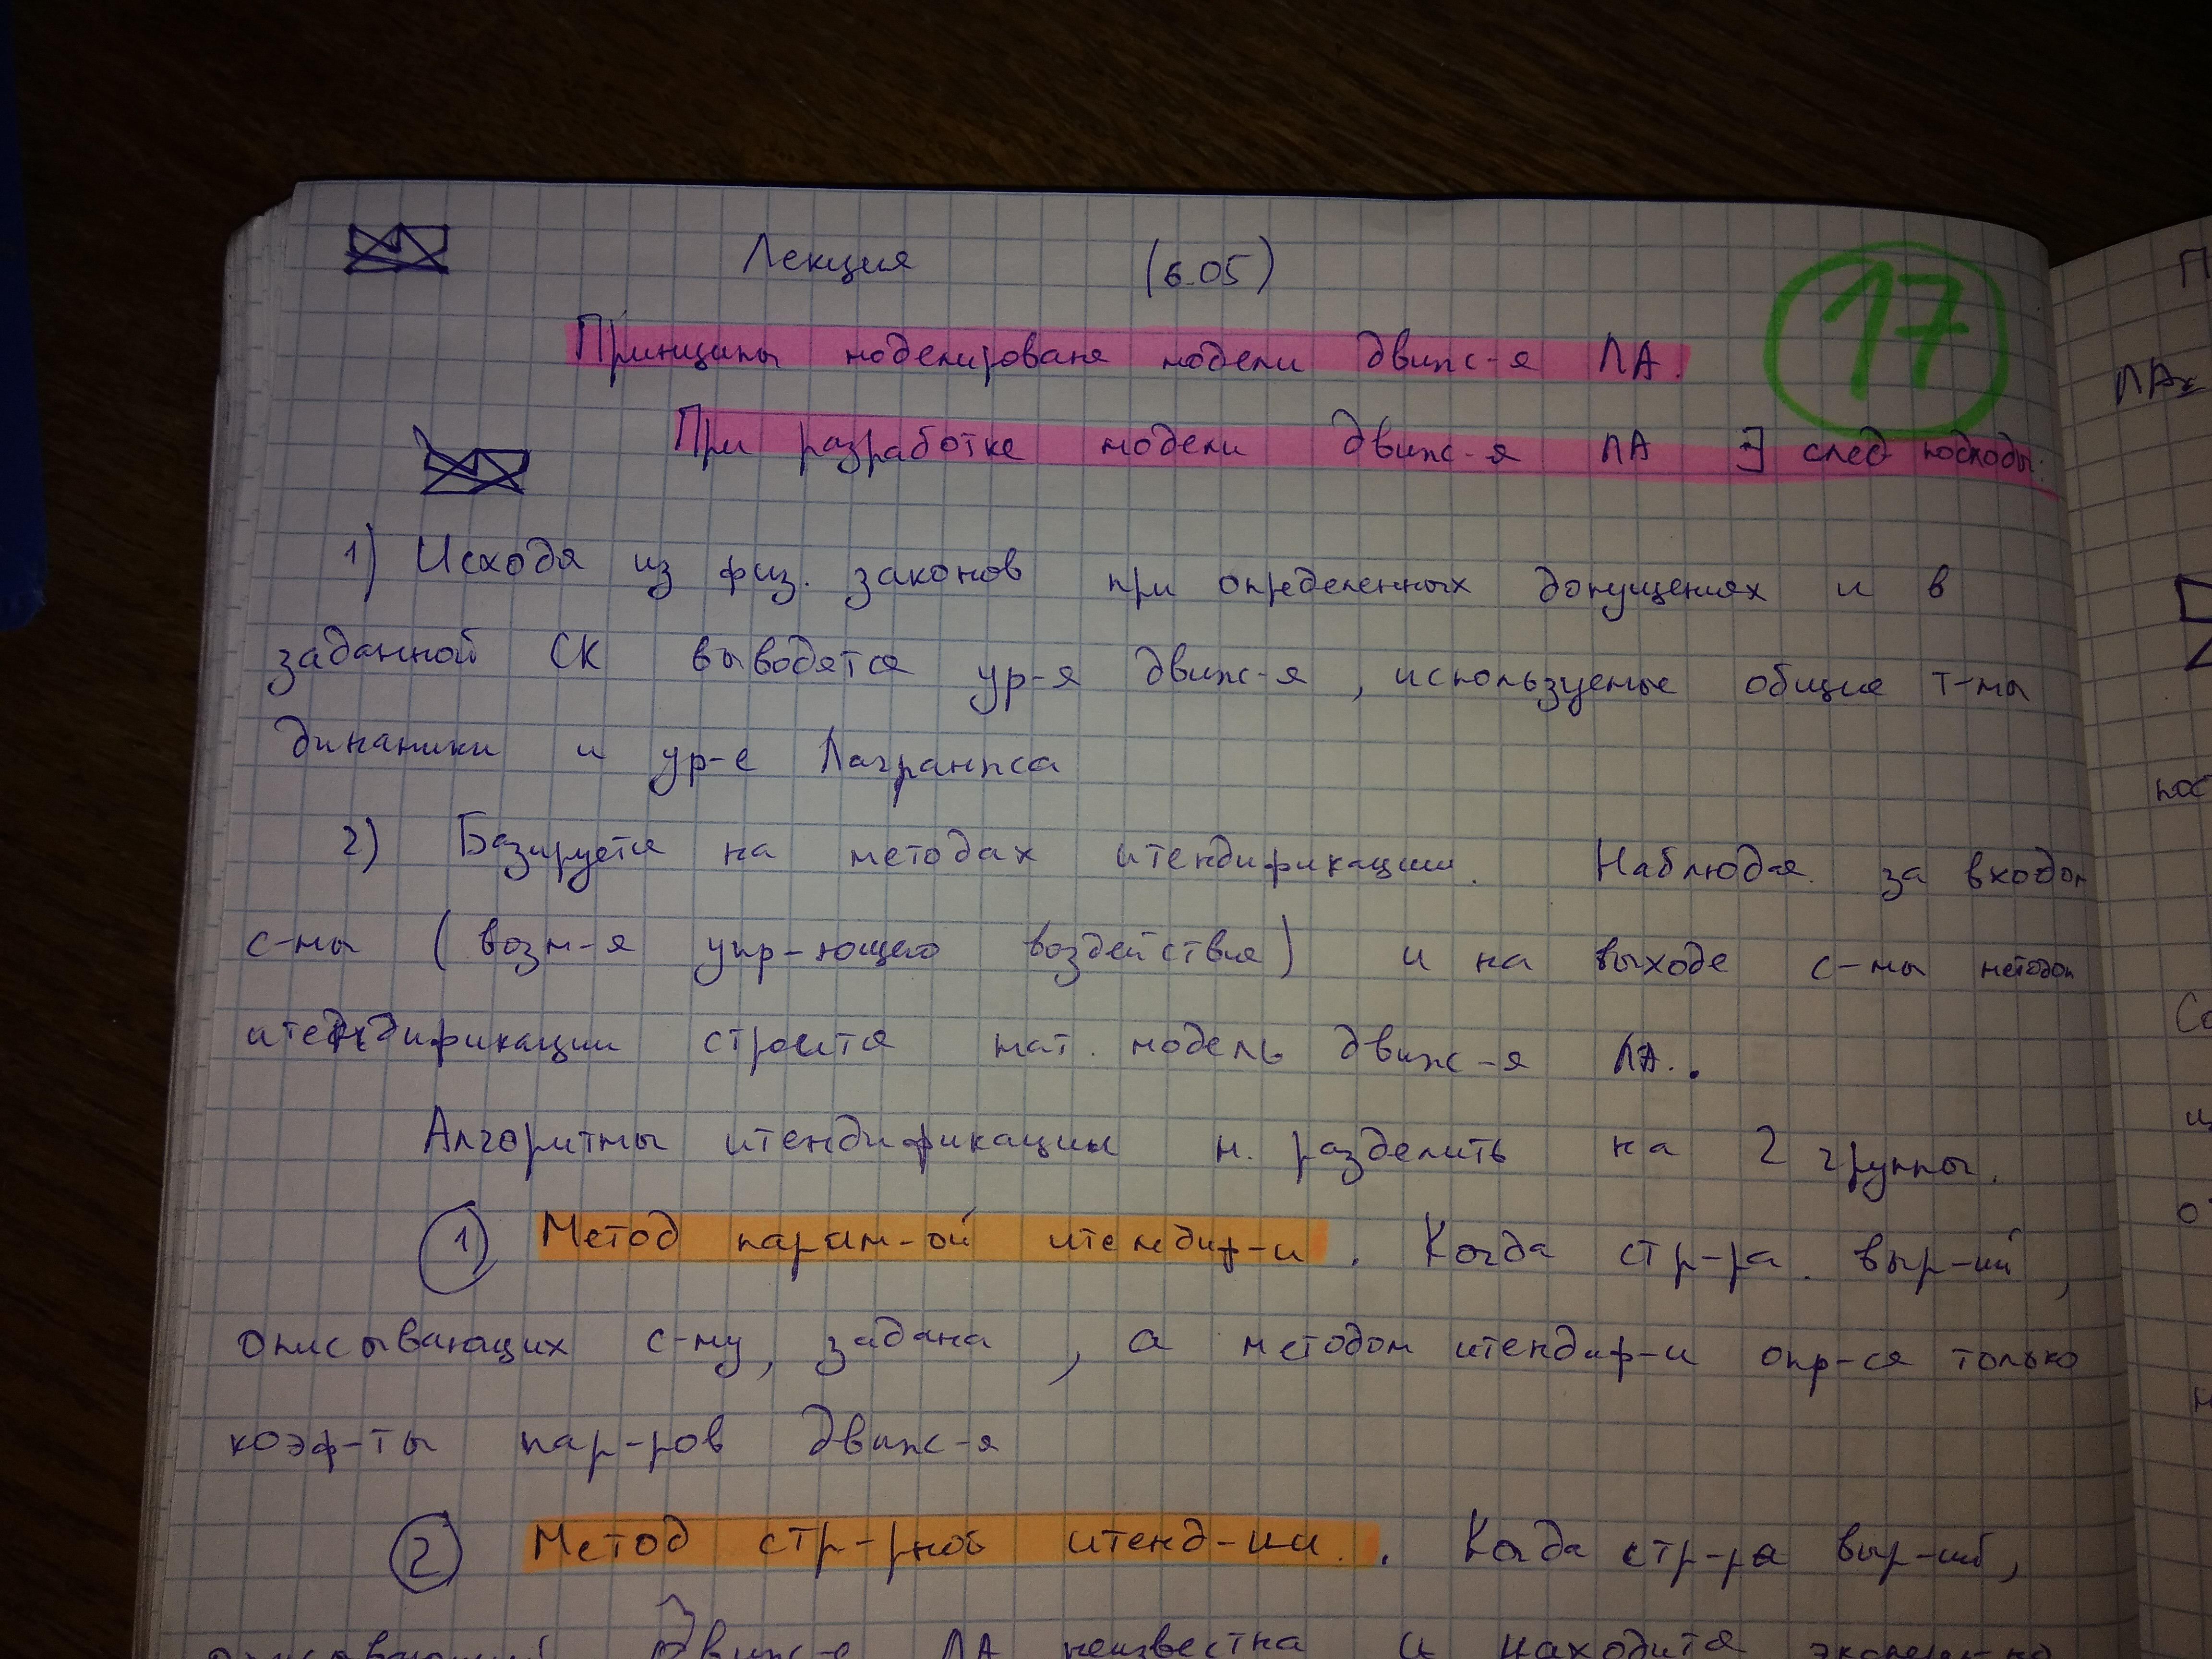 Лекция (6.05)
17
Принципы моделированя модели движ-я ЛА.
При разработке модели движ-я ЛА ∃ след подходы:
1) Исходя из физ. законов при определенных допущениях и в
заданной СК выводятся ур-я движ-я, используемые общие т-мы
динамики и ур-е Лагранжа
2) Базируется на методах итендификации. Наблюдая за входом
с-мы (возм-я упр-ющего воздействия) и на выходе с-мы методом
итендификации строится мат. модель движ-я ЛА.
Алгоритмы итендификации м. разделить на 2 группы.
1 Метод парам-ой итендиф-и. Когда стр-ра выр-ий,
описывающих с-му, задана, а методом итендиф-и опр-ся только
коэф-ты пар-ров движ-я
2 Метод стр-рной итенд-ии. Когда стр-ра выр-ий,
движ-е ЛА неизвестна и находится